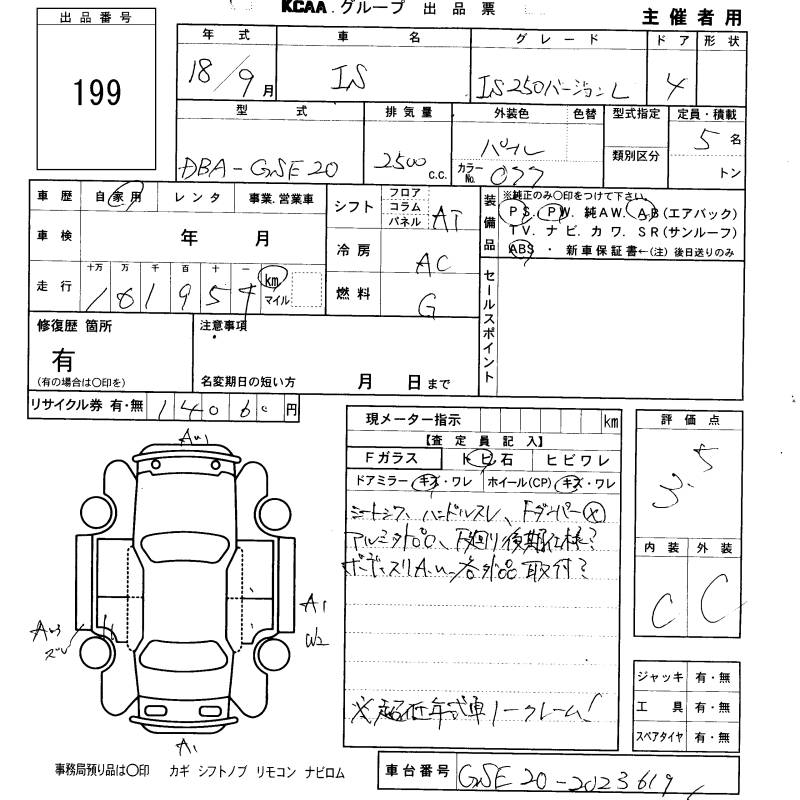 KCAA.グループ 出品票
主催者用
出品番号
199
年式 車名 グレード ドア 形状
18/9月 IS IS250バージョンL 4
型式 排気量 外装色 色替 型式指定 定員・積載
DBA-GSE20 2500c.c. パール 類別区分 5名
カラーNo. 077 トン
車歴 自家用 レンタ 事業.営業車
車検 年 月
走行 十万 万 千 百 十 一 km マイル
181954
シフト フロア コラム パネル AT
冷房 AC
燃料 G
装備品 ※純正のみ〇印をつけて下さい
PS. PW. 純AW. AB(エアバック)
TV. ナビ. カワ. SR(サンルーフ)
ABS ・ 新車保証書←(注)後日送りのみ
セールスポイント
修復歴 箇所
有
(有の場合は〇印を)
注意事項
名変期日の短い方 月 日まで
リサイクル券 有・無 14060円
現メーター指示 km
【査定員記入】
Fガラス トビ石 ヒビワレ
ドアミラー キズ・ワレ ホイール(CP) キズ・ワレ
シートシワ、ハンドルスレ、Fダンパー×
アルミ外品、下廻り後期仕様?
ボディスリAu 各外品取付?
※超低年式車ノークレーム!
評価点
3.5
内装 外装
C C
ジャッキ 有・無
工具 有・無
スペアタイヤ 有・無
A1
W2
A1
事務局預り品は〇印 カギ シフトノブ リモコン ナビロム
車台番号 GSE20-2023619